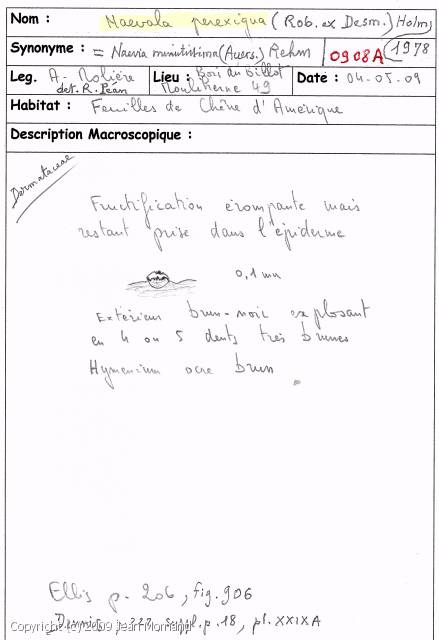 Nom : Naevala perexigua (Rob. ex Desm.) Holm
Synonyme : = Naevia minutissima (Auers.) Rehm 0908A 1978
Leg. A. Molière Lieu : Bois du billot Date : 04-05-09
det. R. Péan Mouliherne 49
Habitat : Feuilles de Chêne d'Amérique
Description Macroscopique :
Dermataceae
Fructification érompante mais
restant prise dans l'épiderme
0,1 mm
Extérieur brun-noir explosant
en 4 ou 5 dents très brunes
Hymenium ocre brun
Ellis p. 206, fig. 906
Copyright (c) 2009 Jean Mornand
222 suppl. p. 18, pl. XXIXA